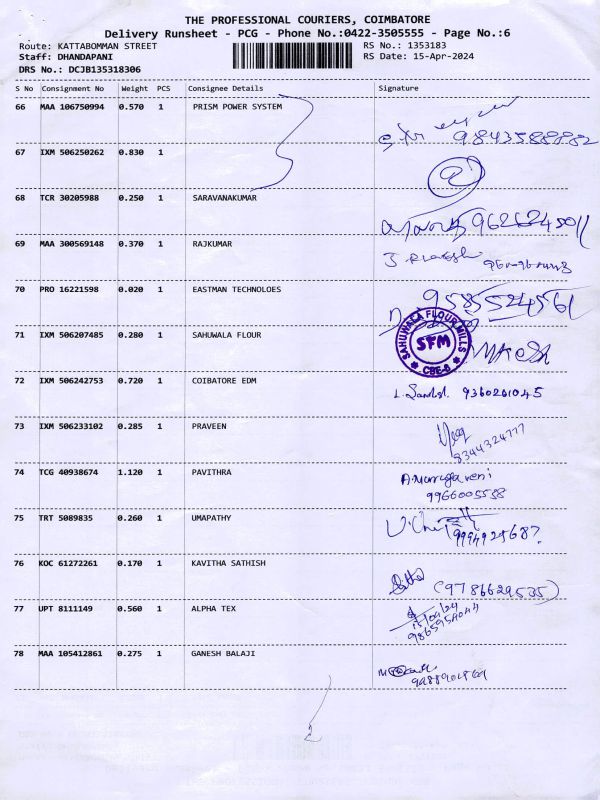 THE PROFESSIONAL COURIERS, COIMBATORE
Delivery Runsheet - PCG - Phone No.:0422-3505555 - Page No.:6
Route: KATTABOMMAN STREET RS No.: 1353183
Staff: DHANDAPANI RS Date: 15-Apr-2024
DRS No.: DCJB135318306
S No Consignment No Weight PCS Consignee Details Signature
66 MAA 106750994 0.570 1 PRISM POWER SYSTEM
9843588882
67 IXM 506250262 0.830 1
68 TCR 30205988 0.250 1 SARAVANAKUMAR
69 MAA 300569148 0.370 1 RAJKUMAR
70 PRO 16221598 0.020 1 EASTMAN TECHNOLOES
9585524561
71 IXM 506207485 0.280 1 SAHUWALA FLOUR
SAHUWALA FLOUR MILLS
SFM
CBE-8
72 IXM 506242753 0.720 1 COIBATORE EDM
9360201045
73 IXM 506233102 0.285 1 PRAVEEN
8344324777
74 TCG 40938674 1.120 1 PAVITHRA
A.Murugaveni
9966005538
75 TRT 5089835 0.260 1 UMAPATHY
76 KOC 61272261 0.170 1 KAVITHA SATHISH
(9786629535)
77 UPT 8111149 0.560 1 ALPHA TEX
15/04/24
78 MAA 105412861 0.275 1 GANESH BALAJI